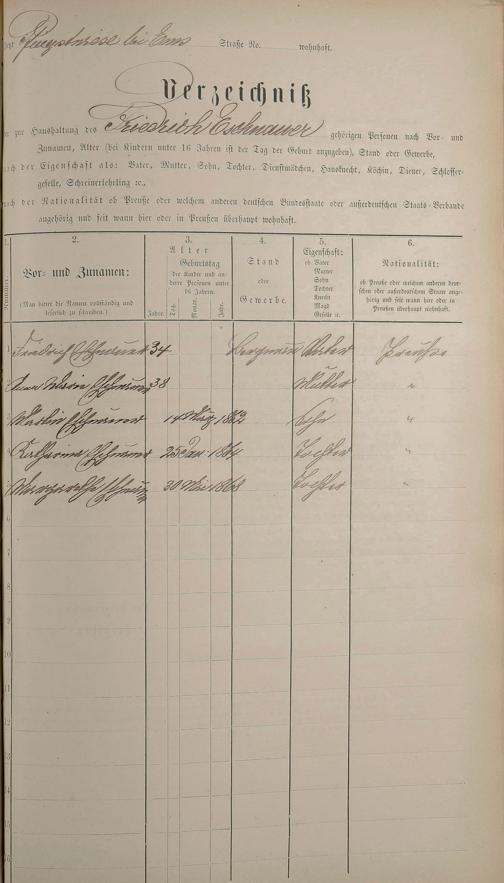 Pfingstwiese bei Ems Straße No. wohnhaft.
Verzeichniß
zur Haushaltung des Friedrich Eschnauer gehörigen Personen nach Vor- und
Zunamen, Alter (bei Kindern unter 16 Jahren ist der Tag der Geburt anzugeben), Stand oder Gewerbe,
nach der Eigenschaft als: Vater, Mutter, Sohn, Tochter, Dienstmädchen, Hausknecht, Köchin, Diener, Schlosser-
geselle, Schreinerlehrling ꝛc.,
nach der Nationalität ob Preuße oder welchem anderen deutschen Bundesstaate oder außerdeutschen Staats-Verbande
angehörig und seit wann hier oder in Preußen überhaupt wohnhaft.
1. 2. 3. 4. 5. 6.
Nummer.
Vor- und Zunamen:
(Man bittet die Namen vollständig und
leserlich zu schreiben.)
Alter
Geburtstag
der Kinder und an-
derer Personen unter
16 Jahren.
Jahre. Tag. Monat. Jahr.
Stand
oder
Gewerbe.
Eigenschaft:
ob Vater
Mutter
Sohn
Tochter
Knecht
Magd
Geselle ꝛc.
Nationalität:
ob Preuße oder welchem anderen deut-
schen oder außerdeutschen Staate ange-
hörig und seit wann hier oder in
Preußen überhaupt wohnhaft.
1 Friedrich Eschnauer 34 Bergmann Vater Preuße
2 Eschnauer 38 Mutter "
3 Eschnauer 14 März 1862 Sohn "
4 Katharina Eschnauer 25 Jan. 1864 Tochter "
5 Margarethe Eschnauer 30 Mai 1868 Tochter "
6
7
8
9
10
11
12
13
14
15
16